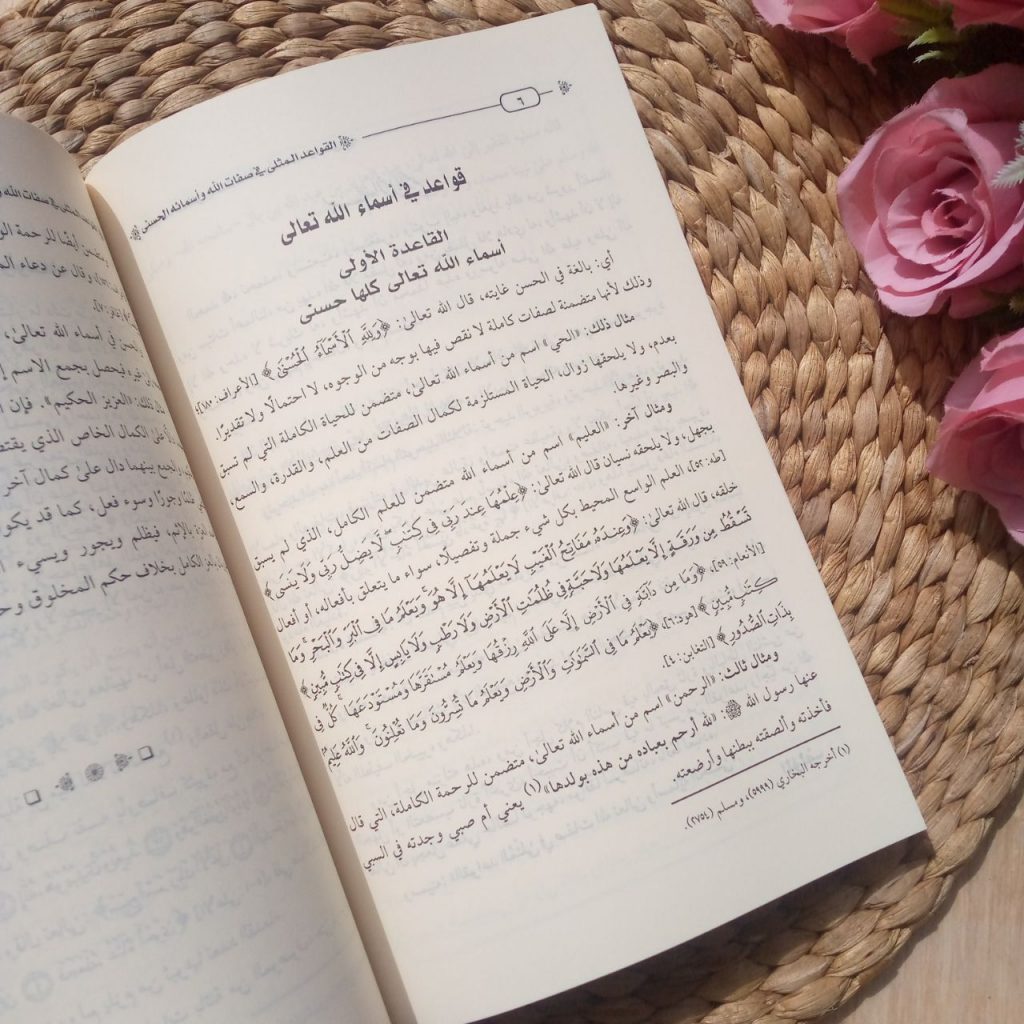 ٦
القواعد المثلى في صفات الله وأسمائه الحسنى
قواعد في أسماء الله تعالى
القاعدة الأولى
أسماء الله تعالى كلها حسنى
أي: بالغة في الحسن غايته، قال الله تعالى: ﴿وَلِلَّهِ الْأَسْمَاءُ الْحُسْنَىٰ﴾ [الأعراف: ١٨٠]،
وذلك لأنها متضمنة لصفات كاملة لا نقص فيها بوجه من الوجوه، لا احتمالًا ولا تقديرًا.
مثال ذلك: «الحي» اسم من أسماء الله تعالى، متضمن للحياة الكاملة التي لم تسبق
بعدم، ولا يلحقها زوال، الحياة المستلزمة لكمال الصفات من العلم، والقدرة، والسمع،
والبصر وغيرها.
ومثال آخر: «العليم» اسم من أسماء الله متضمن للعلم الكامل، الذي لم يسبق
بجهل، ولا يلحقه نسيان قال الله تعالى: ﴿عِلْمُهَا عِندَ رَبِّي فِي كِتَابٍ لَّا يَضِلُّ رَبِّي وَلَا يَنسَى﴾
[طه: ٥٢]، العلم الواسع المحيط بكل شيء جملة وتفصيلًا، سواء ما يتعلق بأفعاله، أو أفعال
خلقه، قال الله تعالى: ﴿وَعِندَهُ مَفَاتِحُ الْغَيْبِ لَا يَعْلَمُهَا إِلَّا هُوَ وَيَعْلَمُ مَا فِي الْبَرِّ وَالْبَحْرِ وَمَا
تَسْقُطُ مِن وَرَقَةٍ إِلَّا يَعْلَمُهَا وَلَا حَبَّةٍ فِي ظُلُمَاتِ الْأَرْضِ وَلَا رَطْبٍ وَلَا يَابِسٍ إِلَّا فِي كِتَابٍ مُّبِينٍ﴾
[الأنعام: ٥٩]، ﴿وَمَا مِن دَابَّةٍ فِي الْأَرْضِ إِلَّا عَلَى اللَّهِ رِزْقُهَا وَيَعْلَمُ مُسْتَقَرَّهَا وَمُسْتَوْدَعَهَا كُلٌّ فِي
كِتَابٍ مُّبِينٍ﴾ [هود: ٦]، ﴿يَعْلَمُ مَا فِي السَّمَاوَاتِ وَالْأَرْضِ وَيَعْلَمُ مَا تُسِرُّونَ وَمَا تُعْلِنُونَ وَاللَّهُ عَلِيمٌ
بِذَاتِ الصُّدُورِ﴾ [التغابن: ٤].
ومثال ثالث: «الرحمن» اسم من أسماء الله تعالى، متضمن للرحمة الكاملة، التي قال
عنها رسول الله ﷺ: «لله أرحم بعباده من هذه بولدها»(١) يعني أم صبي وجدته في السبي
فأخذته وألصقته ببطنها وأرضعته.
(١) أخرجه البخاري (٥٩٩٩)، ومسلم (٢٧٥٤).
أيضًا للرحمة
وقال عن دعاء
في أسماء الله تعالى،
فيحصل بجمع الاسم
ذلك: «العزيز الحكيم». فإن
الكمال الخاص الذي
بينهما دال على كمال آخر
وجورًا وسوء فعل، كما قد
بالإثم، فيظلم ويجور ويسيء
الكامل بخلاف حكم المخلوق